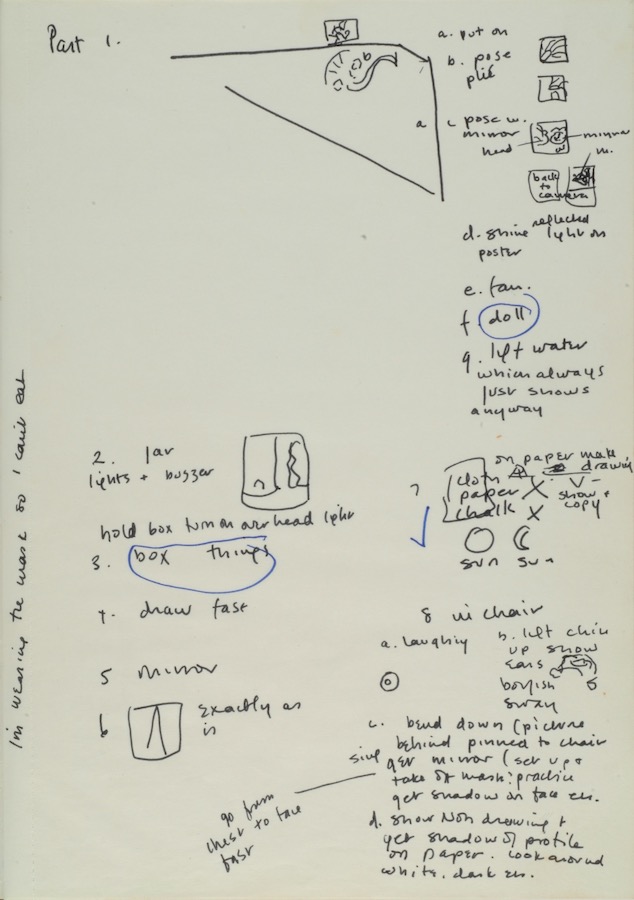 Part 1.
a. put on
b. pose
plié
b
a
c pose w.
mirror
head
mirror
m.
back
to
camera
d. shine reflected
light on
poster
e. fan.
f. doll
g. left water
which always
just shows
anyway
2. jar
lights + buzzer
hold box turn on over head light
3. box things
4. draw fast
5 mirror
6 exactly as
is
7
cloth
paper X
chalk X
on paper make
drawing
show +
copy
sun sun
8 in chair
a. laughing
b. left chin
up show
ears
boyish
sway
c. bend down (picture
behind pinned to chair
sing get mirror (set up +
take off mask: practice
get shadow on face etc.
go from
chest to face
fast
d. show Non drawing +
get shadow of profile
on paper. look around
white, dark etc.
Im wearing the mask so I can't eat